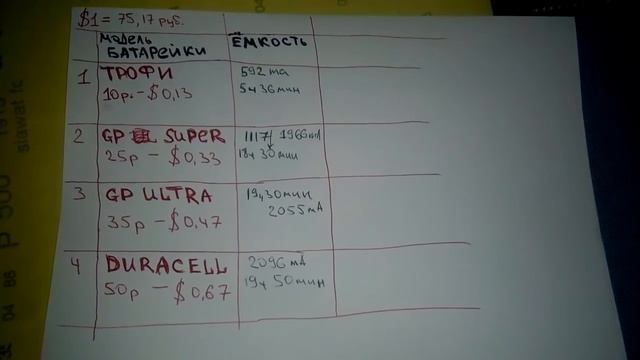 $1 = 75,17 руб.
модель
БАТАРЕЙКИ
ЁМКОСТЬ
1
ТРОФИ
10р. - $0,13
592 ma
5ч 36мин
2
GP SUPER
25р - $0,33
1117/ 1966mA
18ч 30мин
3
GP ULTRA
35р - $0,47
19ч 30мин
2055mA
4
DURACELL
50р - $0,67
2096 mA
19ч 50мин